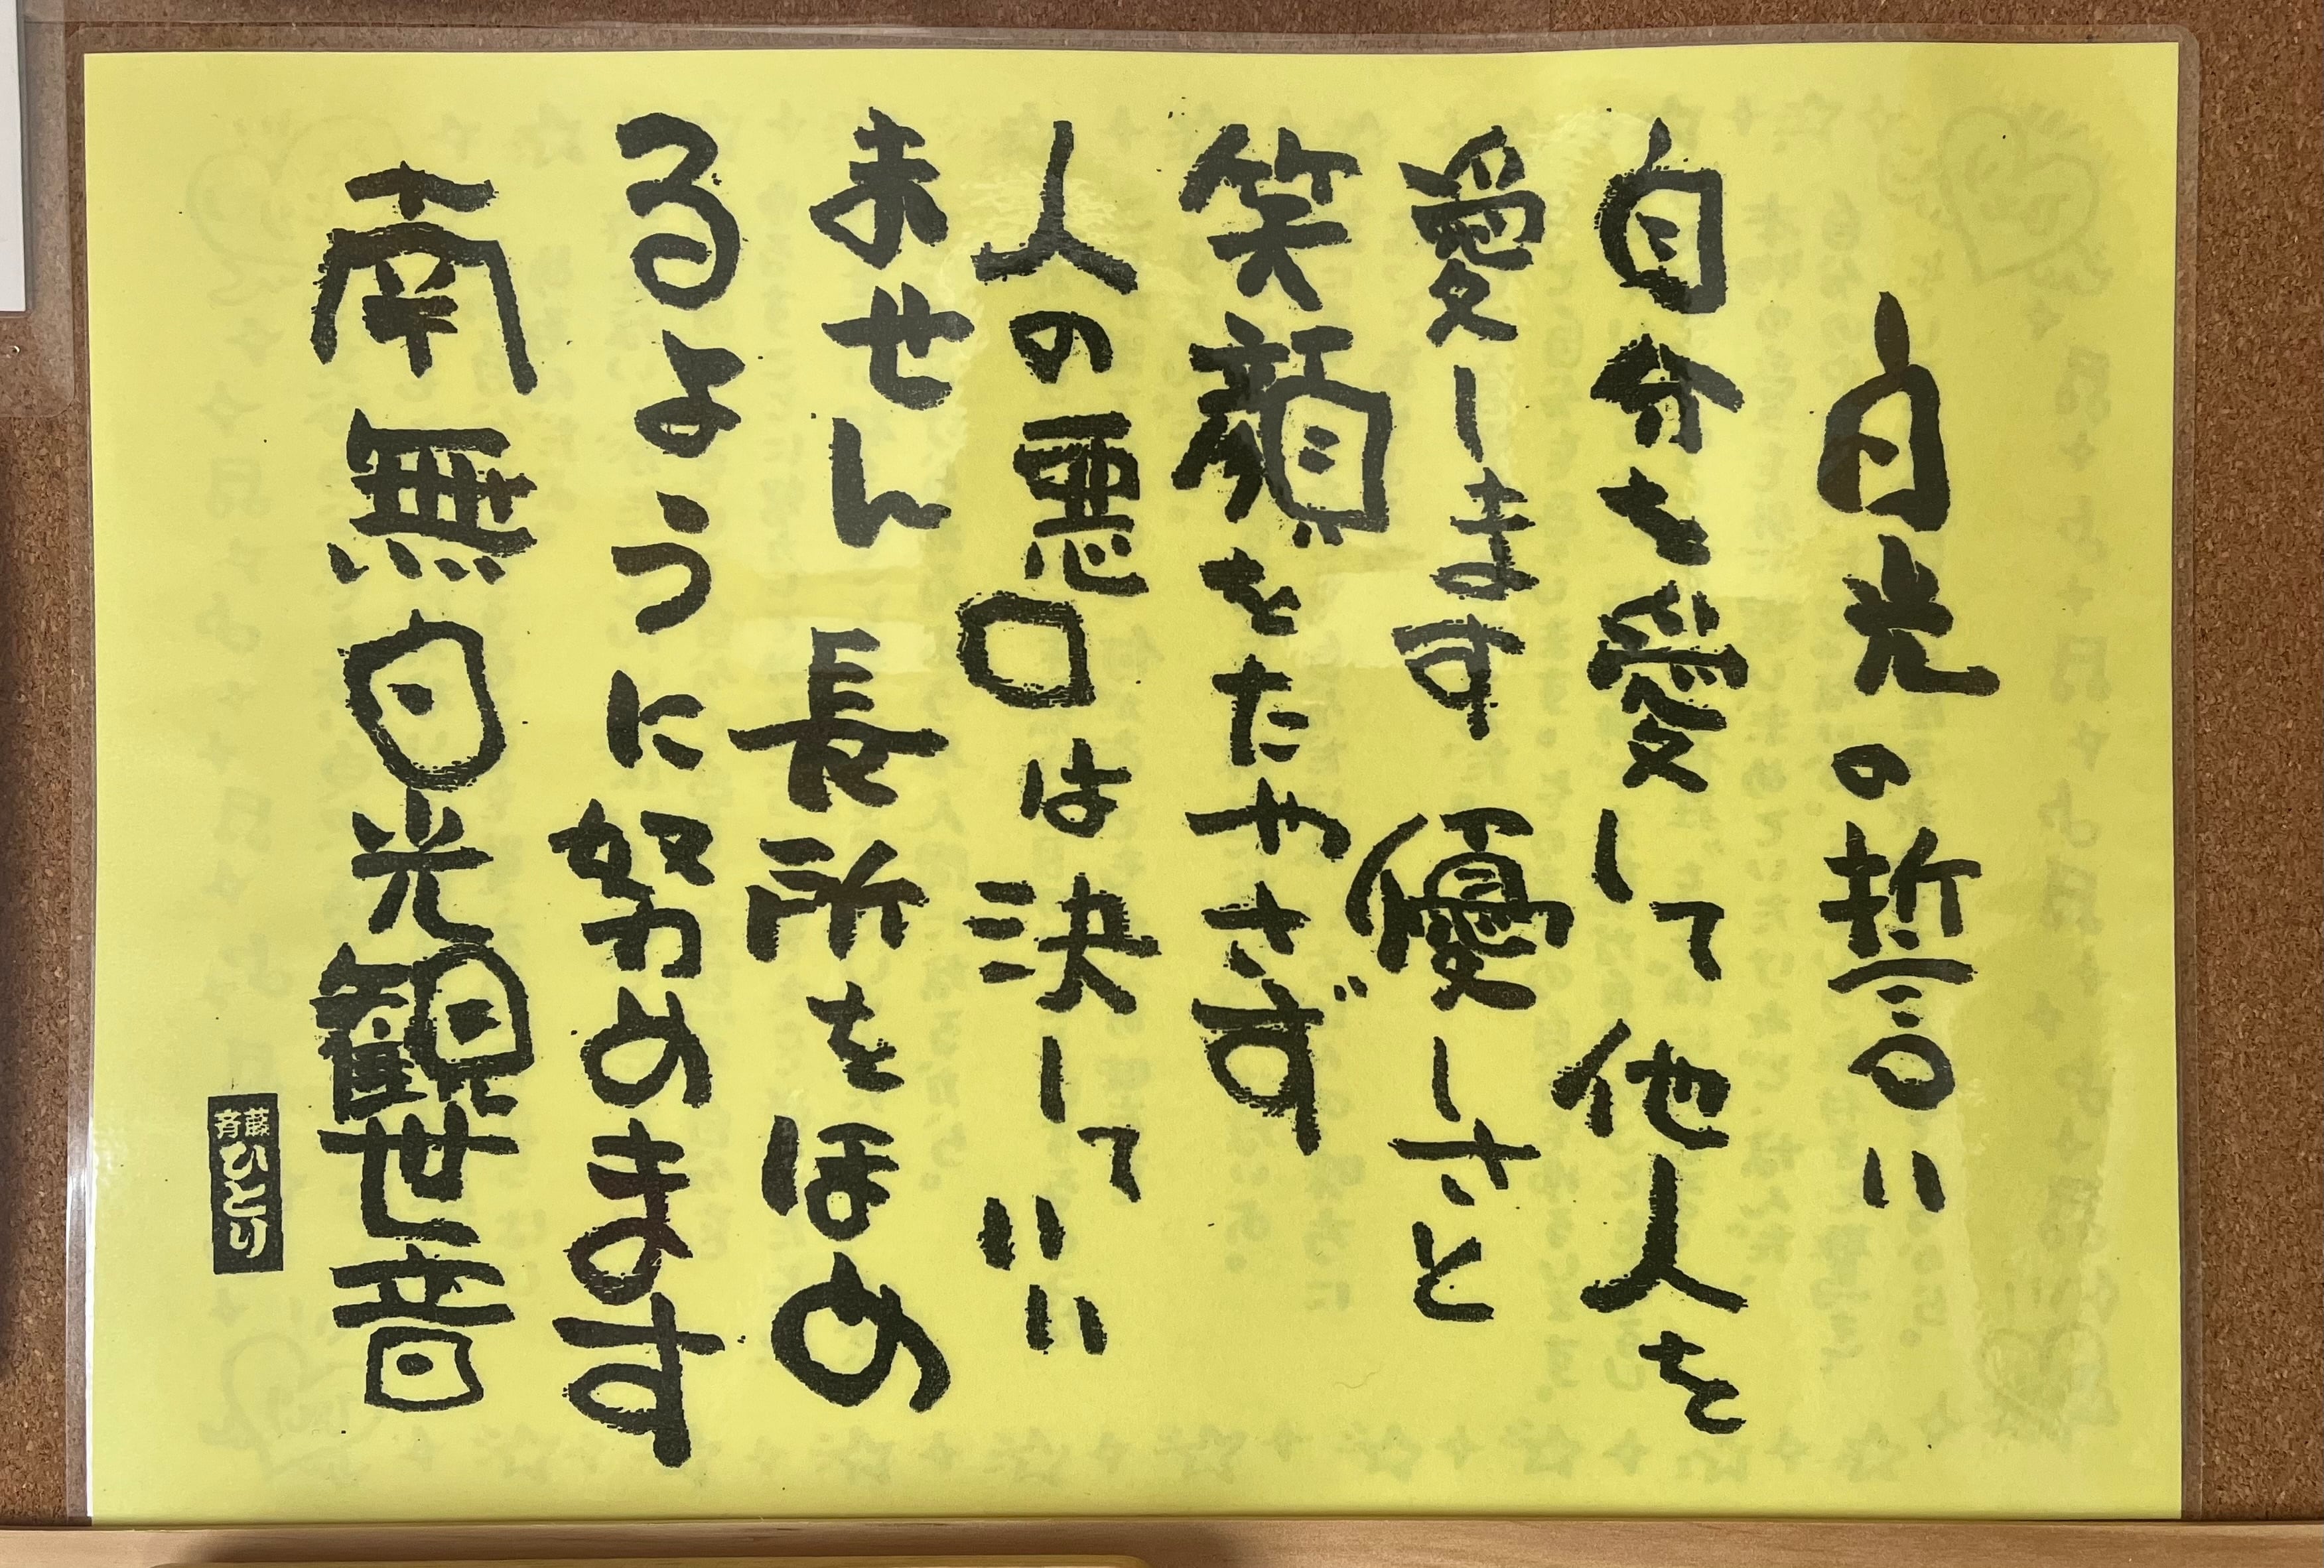 白光の誓い
自分を愛して他人を
愛します 優しさと
笑顔をたやさず
人の悪口は決していい
ません 長所をほめ
るように努めます
南無白光観世音
斉藏
ひとり